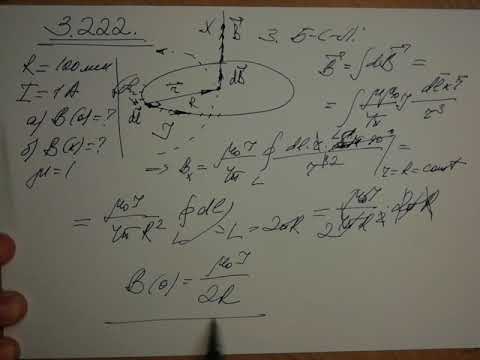 3.222.
R = 100 мм
I = 1 A
а) B(0) = ?
б) B(x) = ?
μ = 1
X B⃗
dB⃗
r⃗
R
dl⃗
I
З. Б-С-Л:
B⃗ = ∫dB⃗ =
= ∫ μμ₀/4π I dl⃗ × r⃗ / r³
=> Bₓ = μ₀I/4π ∮ dl · / r² | r = R = const =
L
= μ₀I/4πR² ∮dl = L = 2πR = μ₀I/4πR² · 2πR
L
B(0) = μ₀I/2R